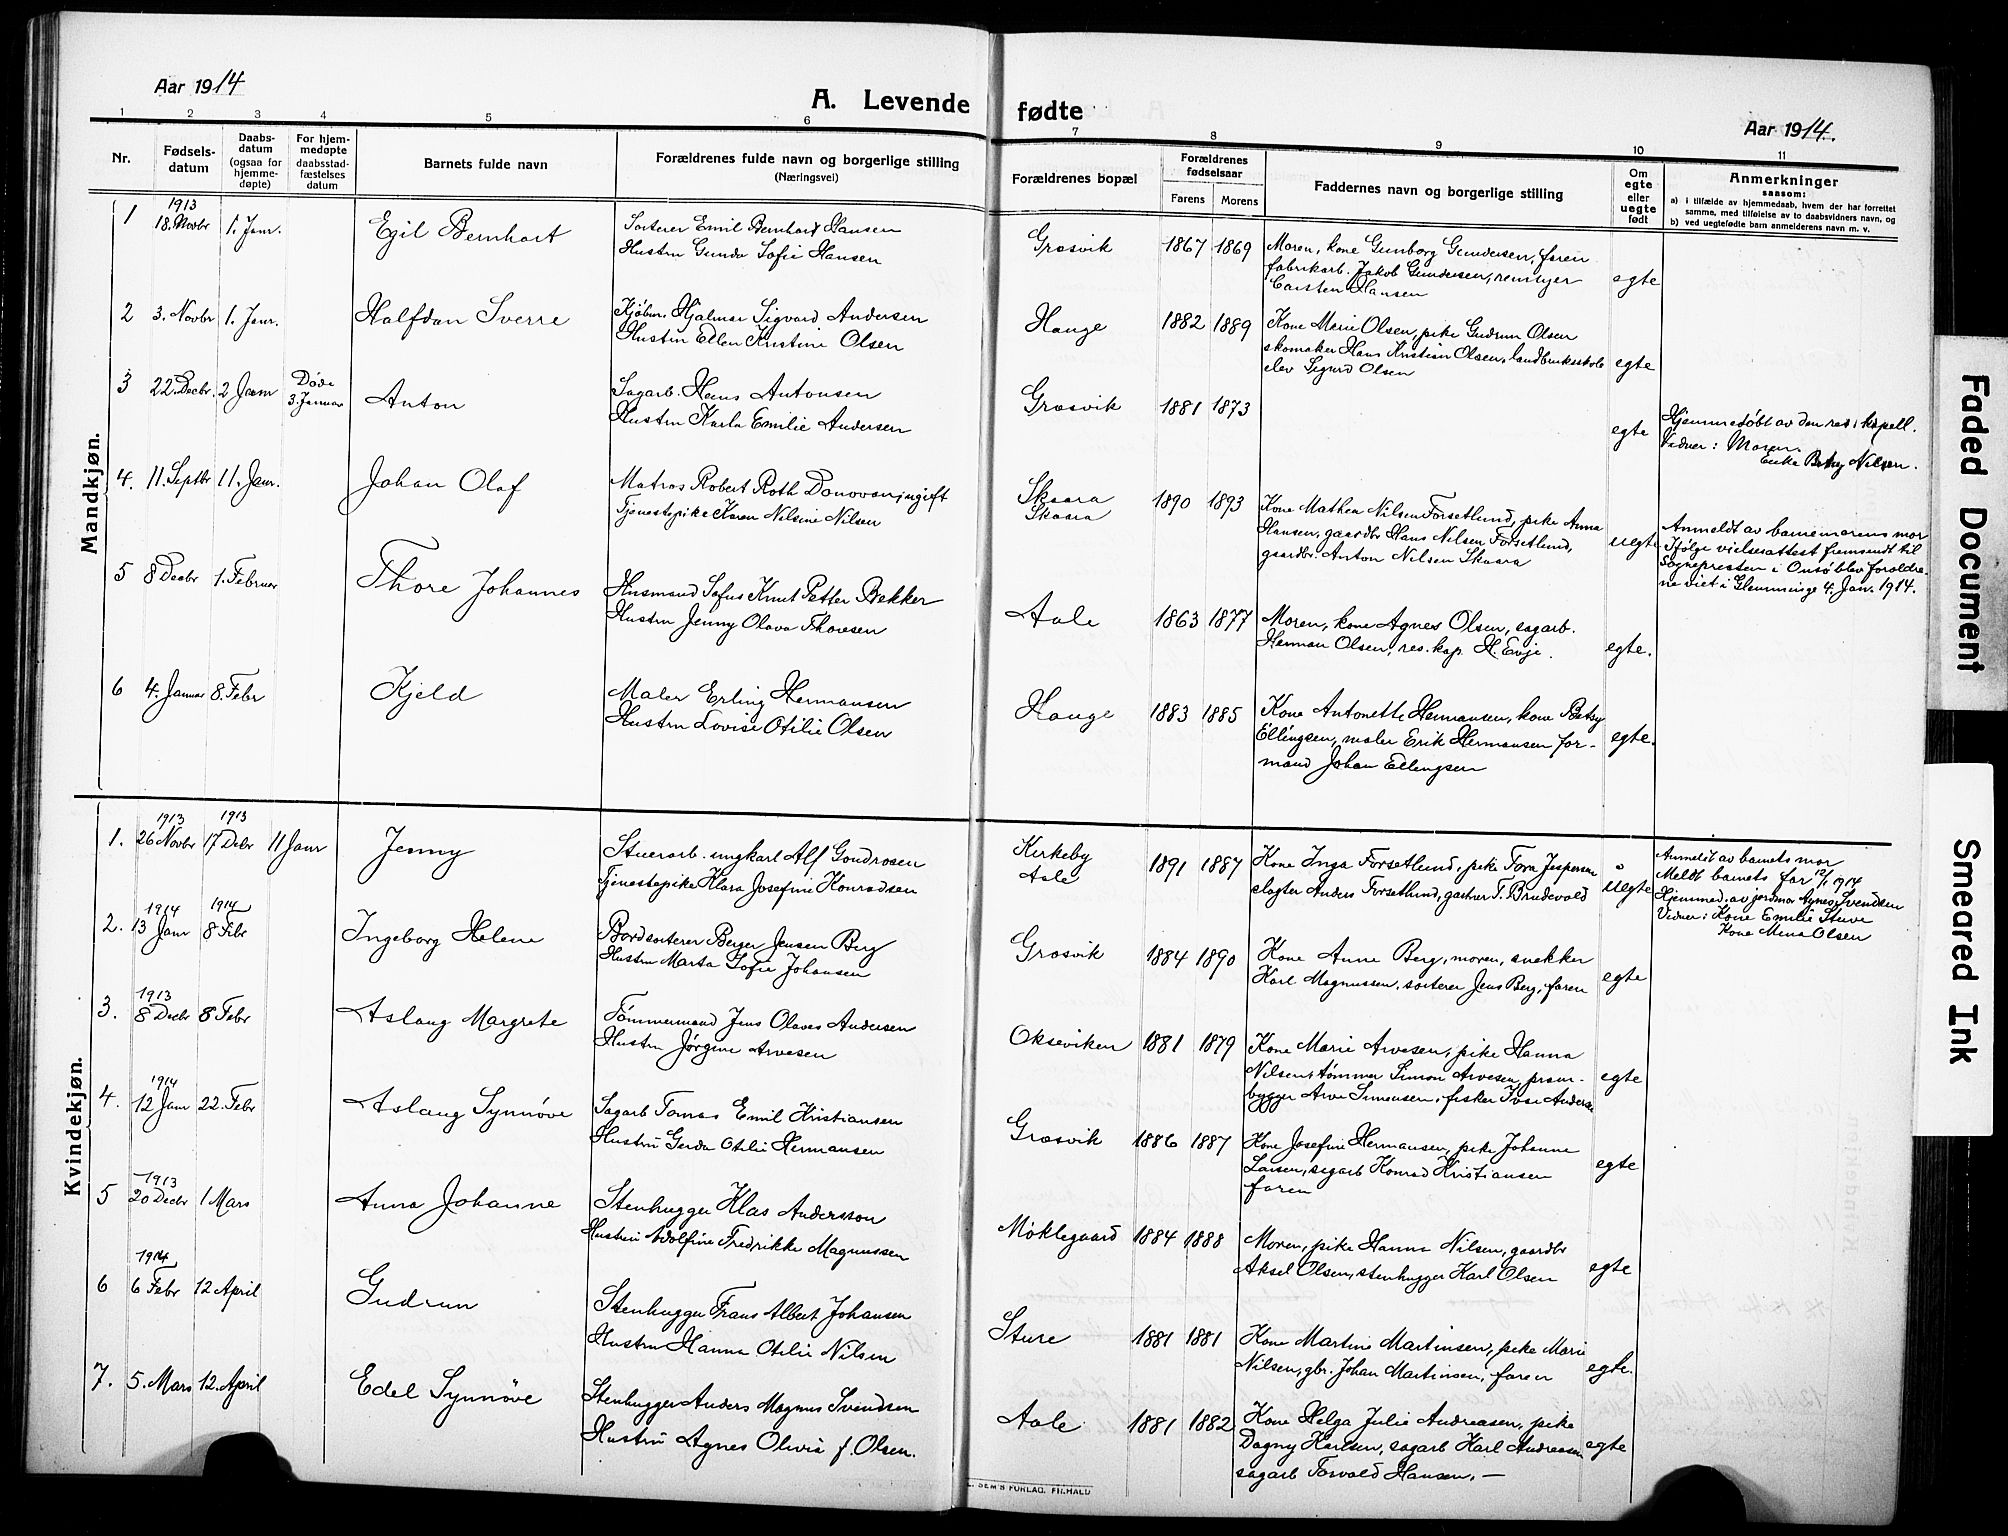 Aar 1914
A. Levende fødte
Aar 1914.
1 2 3 4 5 6 7 8 9 10 11
Nr.
Fødsels-
datum
Daabs-
datum
(ogsaa for
hjemme-
døpte)
For hjem-
medøpte
daabsstad-
fæstelses
datum
Barnets fulde navn
Forældrenes fulde navn og borgerlige stilling
(Næringsvei)
Forældrenes bopæl
Forældrenes
fødselsaar
Farens Morens
Faddernes navn og borgerlige stilling
Om
egte
eller
uegte
født
Anmerkninger
saasom:
a) i tilfælde av hjemmedaab, hvem der har forrettet
samme, med tilføielse av to daabsvidners navn, og
b) ved uegtefødte barn anmelderens navn m. v.
Mandkjøn.
1
1913
18. Novbr 1. Janr.
Egil Bernhart
Sorterer Emil Bernhart Hansen
Hustru Gunda Sofie Hansen
Græsvik 1867 1869
Moren, kone Gunborg Gundersen, faren
fabrikarb. Jakob Gundersen, rentyer
Carsten Hansen
egte
2 3. Novbr 1. Janr.
Halfdan Sverre
Kjøbm. Hjalmar Sigvard Andersen
Hustru Ellen Kristine Olsen
Hauge 1882 1889
Kone Marie Olsen, pike Gudrun Olsen
skomaker Hans Kristian Olsen, landbruksskole
elev Sigurd Olsen
egte
3 22. Decbr. 2 Janr
Døde
3. Januar
Anton
Sagarb. Hans Antonsen
Hustru Karla Emilie Andersen
Græsvik 1881 1873
egte
Hjemmedøbt av den res. kapell.
Vidner: Moren.
Enke Betsy Nilsen.
4. 11. Septbr 11. Janr.
Johan Olaf
Matros Robert Roth Donovan, ugift
Tjenestepike Karen Nilsine Nilsen
Skaara
Skaara
1890 1893
Kone Mathea Nilsen Forsetlund, pike Anna
Hansen, gaardbr. Hans Nilsen Forsetlund,
gaardbr. Anton Nilsen Skaara
uegte
Anmeldt av barnemorens mor
Ifølge vielsesattest fremsendt til
sognepresten i Onsø blev foreldre-
ne viet i Glemminge 4. Jan. 1914.
5 8 Decbr 1. Februar
Thore Johannes
Husmand Sofus Knut Petter Bekker
Hustru Jenny Olava Thoresen
Aale 1863 1877
Moren, kone Agnes Olsen, sagarb.
Herman Olsen, res. kap. H. Evje.
egte.
6 4. Januar 8. Febr
Kjeld
Maler Erling Hermansen
Hustru Lovise Otilie Olsen
Hauge 1883 1885
Kone Antonette Hermansen, kone Betsy
Ellingsen, maler Erik Hermansen for-
mand Johan Ellingsen
egte.
Kvindekjøn.
1913 1913
1. 26 Novbr 17 Debr 11 Janr
Jenny
Stuerarb. ungkarl Alf Gondrosen
Tjenestepike Klara Josefine Konradsen
Kirkeby
Aale
1891 1887
Kone Inga Forsetlund, pike Tora Jespersen
slagter Anders Forsetlund, gartner T. Brudevold
uegte
Anmeldt av barnets mor
Meldt barnets far 12/1 1914
Hjemmed. av jordmor Agnes Svendsen
Vidner: Kone Emilie Sture
Kone Mina Olsen
1914 1914
2. 13 Janr 8 Febr
Ingeborg Helene
Bordsorterer Berger Jensen Berg
Hustru Marta Sofie Johansen
Græsvik 1884 1890
Kone Anne Berg, moren, snekker
Karl Magnussen, sorterer Jens Berg, faren
egte
1913
3. 8 Decbr 8 Febr
Aslaug Margrete
Tømmermand Jens Olaves Andersen
Hustru Jørgine Arvesen
Okseviken 1881 1879
Kone Marie Arvesen, pike Hanna
Nilsen, tømmer Simon Arvesen, pram-
bygger Arve Simensen, fisker Ivar Andersen
egte
1914
4. 12 Janr 22. Febr
Aslaug Synnøve
Sagarb Tomas Emil Kristiansen
Hustru Gerda Otilie Hermansen
Græsvik 1886 1887
Kone Josefine Hermansen, pike Johanne
Larsen, sagarb Konrad Kristiansen
faren
egte
1913
5 20 Decbr 1 Mars
Anna Johanne
Stenhugger Klas Andersson
Hustru Adolfine Fredrikke Magnussen
Møklegaard 1884 1888
Moren, pike Hanna Nilsen, gaardbr
Aksel Olsen, stenhugger Karl Olsen
egte
1914
6 6 Febr 12 April
Gudrun
Stenhugger Frans Albert Johansen
Hustru Hanna Otilie Nilsen
Sture 1881 1881
Kone Martine Martinsen, pike Marie
Nilsen, gbr. Johan Martinsen, faren
egte.
7. 5. Mars 12. April
Edel Synnøve
Stenhugger Anders Magnus Svendsen
Hustru Agnes Olivia f. Olsen.
Aale 1881 1882
Kone Helga Julie Andreasen, pike
Dagny Karlsen, sagarb Karl Andreasen
sagarb Torvald Hansen. —
egte
SEM'S FORLAG, FR.HALD
Faded Document
Smeared Ink